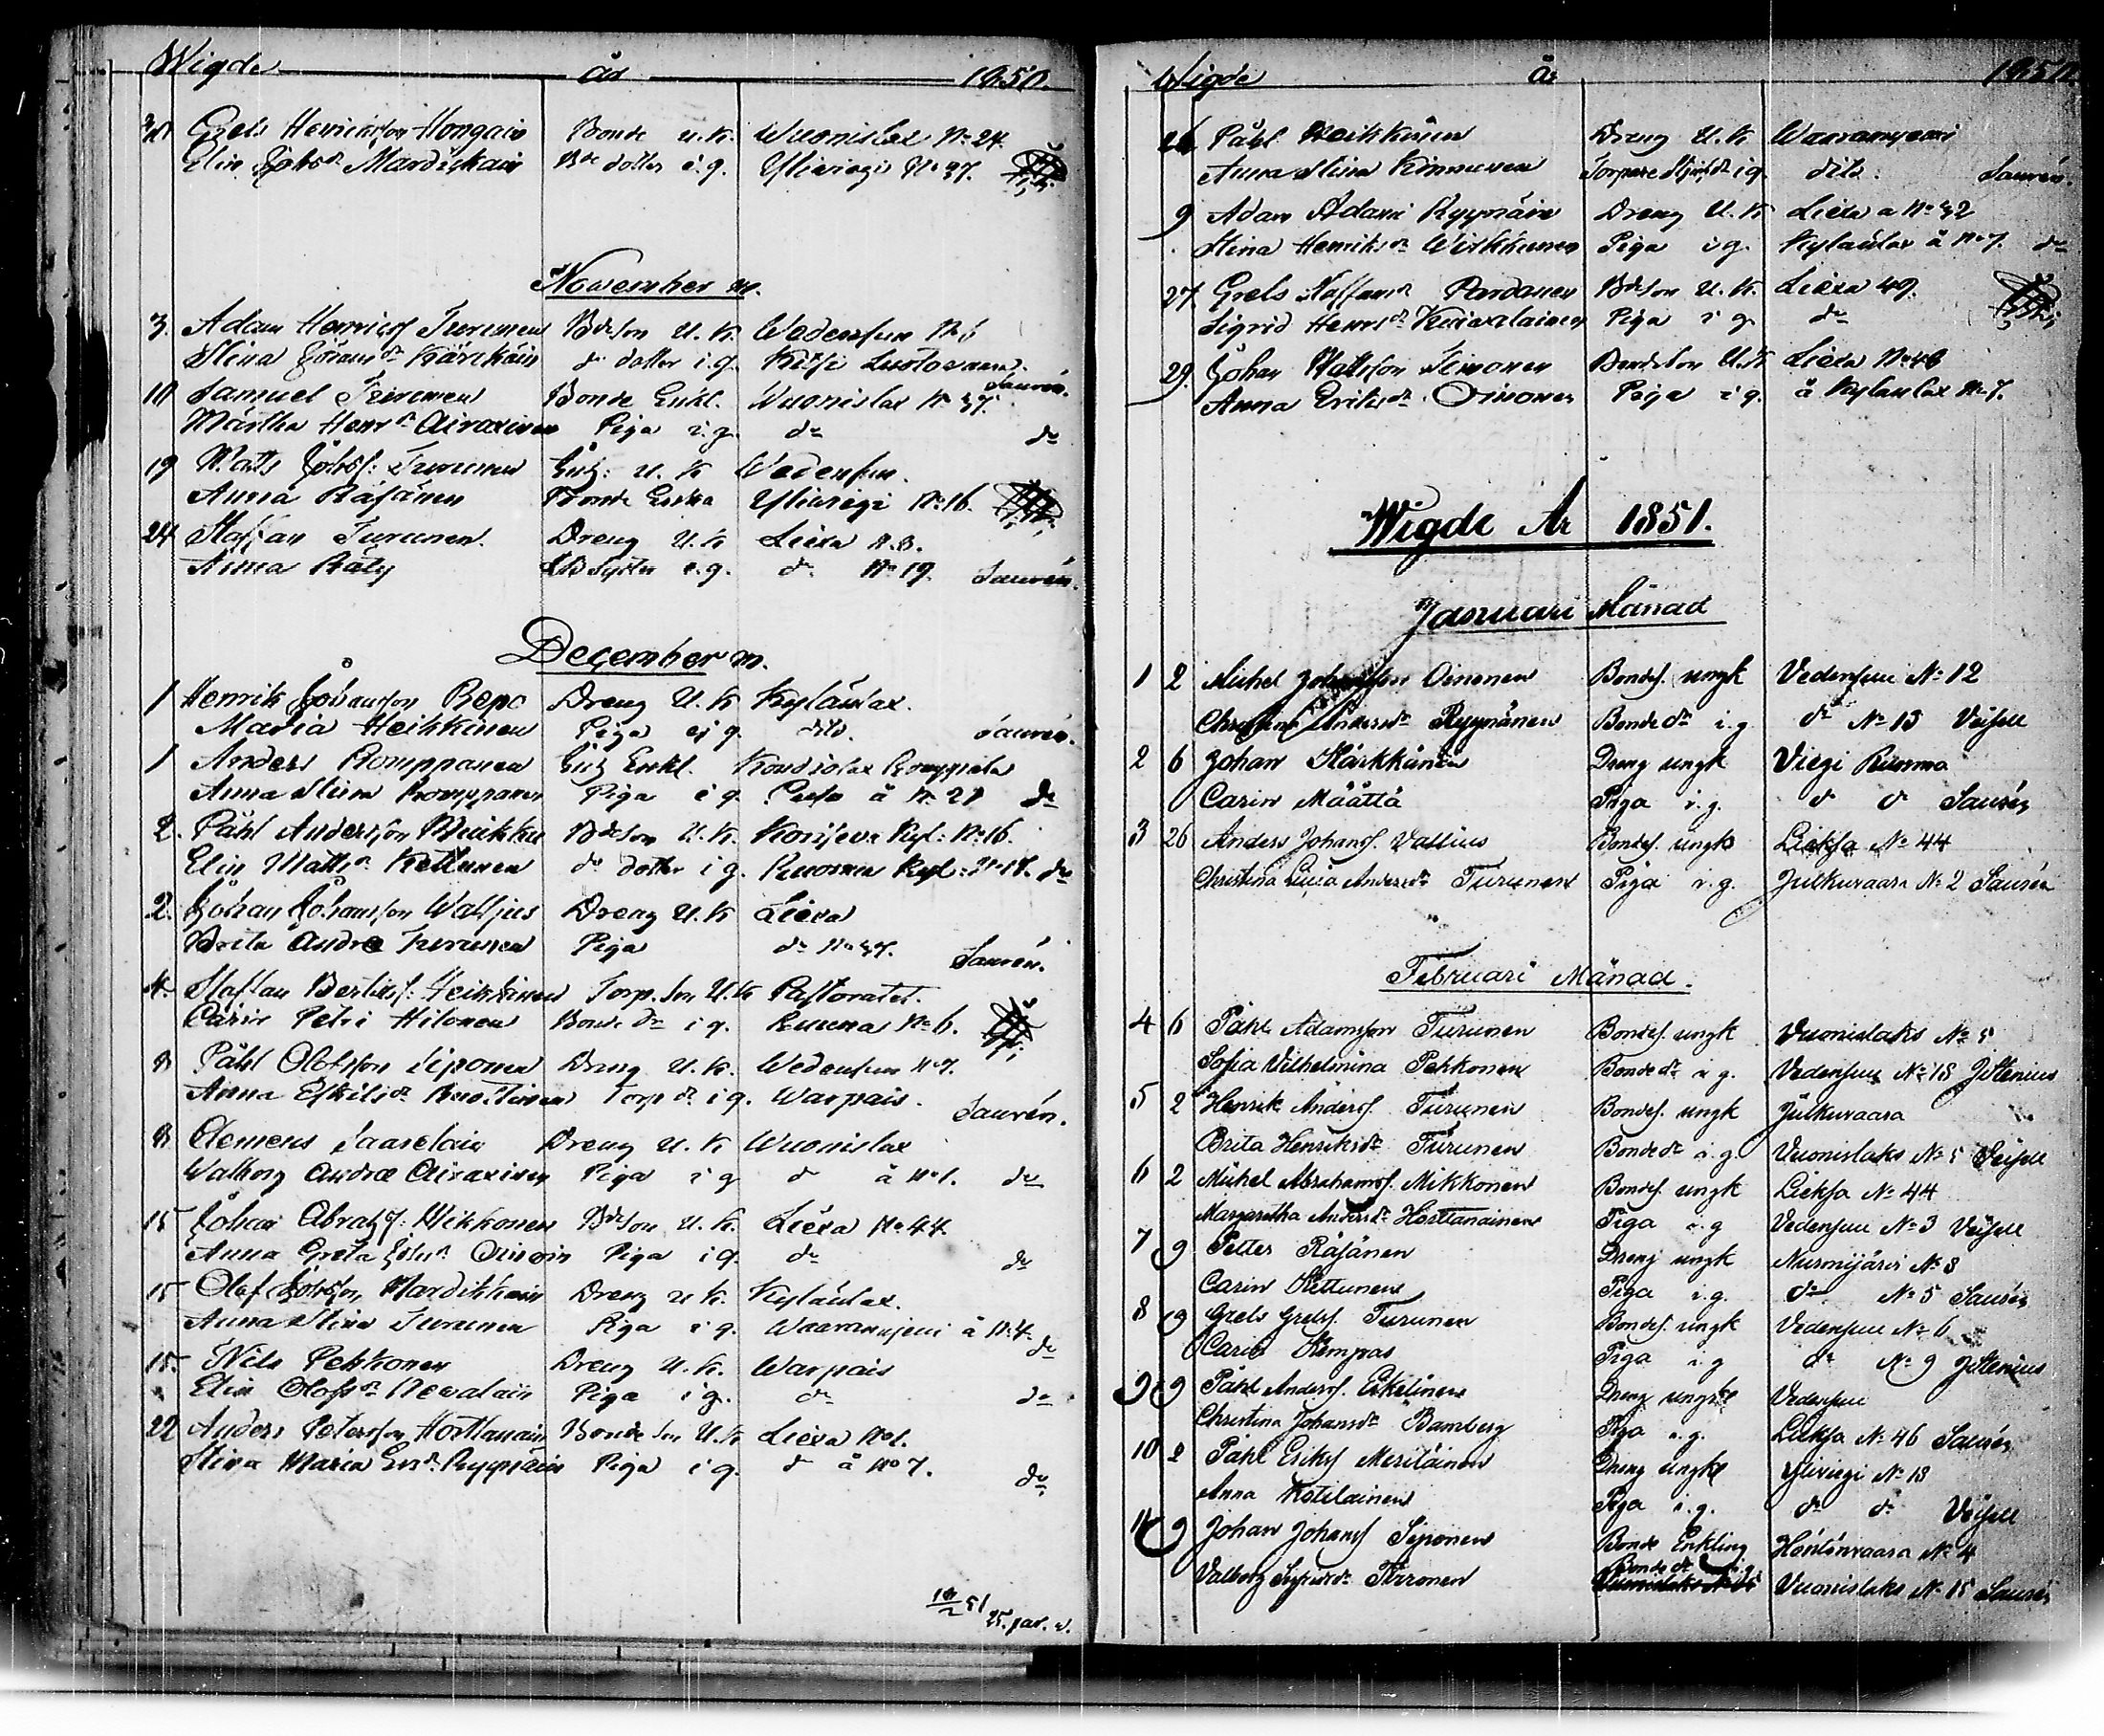 Wigde år 1850.
Grels Henricsson Hongain Bonde u.k. Wuonislax No 24.
Elin Johsdr Mardikain Bde dotter i.g. Yliwiegi No 37.
November m.
3. Adam Henricsf Turunen Bdeson U.K. Wedensuu No 6
Stina Johansdr Kärckäin do dotter i.g. Saurén.
10 Samuel Turunen Bonde Enkl. Wuonislax No 37.
Märtha Henrsdr Airaxinen Piga i.g. do do
19 Matts Johsf: Turunen U.K Wedensuu.
Anna Räsänen Bonde Enka Yliwiegi No 16.
24 Staffan Turunen. Dreng U.K Liexa N.8.
Anna Räty Syster i.g. do No 19. Saurén.
December m.
1 Henrik Johansson Repo Dreng U.K Kylänlax.
Maria Heikkinen Piga i g. dito. Saurén.
1 Anders Romppanen Enkl. Kondiolax Romppala
Anna Stina Romppanen Piga i g. å No 21 do
2. Påhl Andersson Muikku Bdeson U.K. No 16.
Elin Mattsdr Kettunen do dotter i g. do
2. Johan Johansson Walljus Dreng U.K Liexa
Brita Andræ Turunen Piga do No 37. Saurén.
4. Staffan Bertilsf: Heikkinen Torp. son U.K Pastoratet.
Carin Petri Hilonen Bonde dr i g. Ruuna No 6.
8 Påhl Olofsson Siponen Dreng U.K. Wedensuu No 7.
Anna Eskilsdr Torp dr i g. Warpais. Saurén.
8 Clemens Saarelain Dreng U.K Wuonislax
Walborg Andræ Airaxinen Piga i g do å No 1. do
15 Johan Abrahsf: Mikkonen Bdeson U.K. Liexa No 44.
Anna Greta Johsdr Piga i g. do do
15 Olof Johsson Mardikkain Dreng U.K. Kylänlax.
Anna Stina Turunen Piga i g. Waaranujeni å N:4 do
15. Nils Pekkonen Dreng U.K. Warpais
Elin Olofsdr Newalain Piga i g. do do
22 Anders Petersson Horttanain Bonde Son U.K Liexa No 1.
Stina Maria Ersdr Ryynäin Piga i g. do å No 7. do
10/2 51
25. par.
Wigde år 1850.
26 Påhl Heikkinen Dreng U.K
Anna Stina Kinnunen i g. dito. Saurén.
9 Adam Adami Ryynäin Dreng U.K Liexa a No 32
Stina Henriksdr Wiskkunen Piga i.g. Kylänlax å No 7. do
27 Grels Staffansf Pardanen Bdeson U.K. Liexa 49.
Sigrid Henrsdr Kuiwalainen Piga i g do
29 Johan Mattsson Simonen Bondeson U.K Liexa No 46
Anna Eriksdr Oinonen Piga i g. å Kylänlax No 7.
Wigde År 1851.
Januari Månad
1 2 Michel Johansson Oinonen Bondes. ungk Vedensuu No 12
Christina Andersdr Ryynänen Bonde dr i.g do No 13 Veisell
2 6 Johan Kärkkänen Dreng ungk Viegi Ruunna
Carin Määttä Piga i.g. do do Saurén
3 26 Anders Johansf. Vallius Bondes. ungk Lieksa No 44
Christina Lucia Andersdr Turunen Piga i.g. Julkuvaara No 2 Saurén
Februari Månad.
4 6 Påhl Adamsson Turunen Bondes. ungk Vuonislaks No 5
Sofia Vilhelmina Pekkonen Bonde dr i g. Vedensuu No 18 Jttenius
5 2 Henrik Andersf. Turunen Bondes. ungk Julkuvaara
Brita Henriksdr Turunen Bonde dr i.g. Vuonislaks No 5 Veisell
6 2 Michel Abrahamsf. Mikkonen Bondes. ungk Lieksa No 44
Margaretha Andersdr Horttanainen Piga i.g Vedensuu No 3 Veisell
7 9 Petter Räsänen Dreng ungk Nurmijärvi No 8
Carin Kettunen Piga i.g. do No 5 Saurén
8 9 Grels Grelsf. Turunen Bondes. ungk Vedensuu No 6
Carin Kempas Piga i g do No 9 Jttenius
9 9 Påhl Andersf. Eskelinen Dreng ungk Vedensuu
Christina Johansdr Bamberg Piga i.g. Lieksa No 46 Saurén
10 2 Påhl Eriksf Meriläinen Dreng ungk Yliviegi No 18
Anna Kotilainen Piga i.g. do do Veisell
11 9 Johan Johansf Siponen Bonde Enkling Höntönvaara No 4
Valborg Sigfridsdr Piironen Bonde dr i.g. Vuonislaks No 15 Saurén